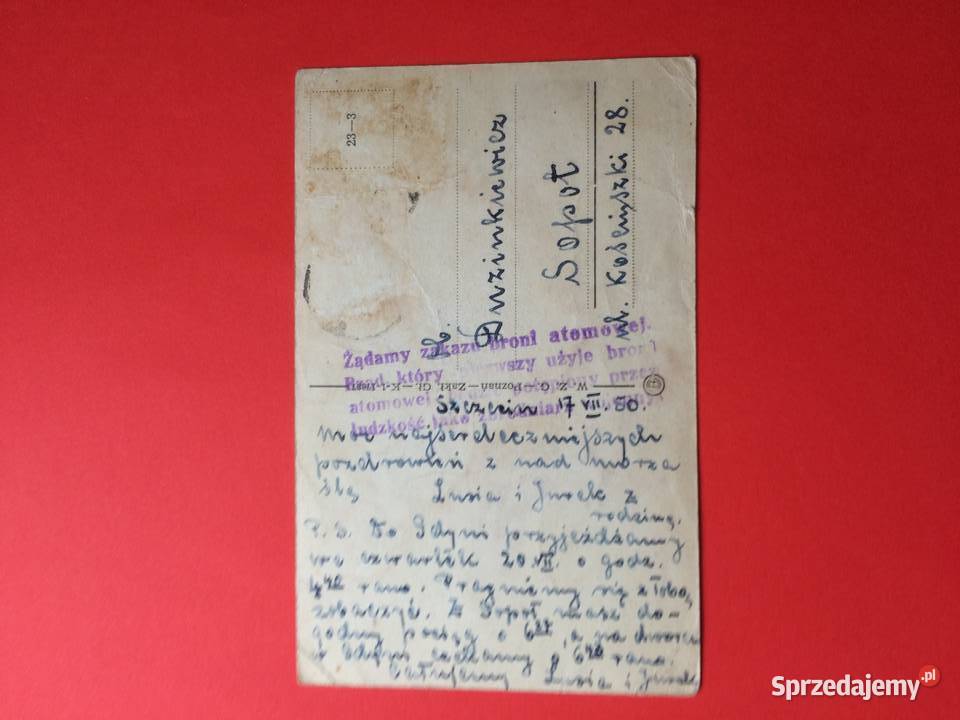 23—3
W. Z. G. — Poznań — Zakł. Gł. — K-1-
Żądamy zakazu broni atomowej.
Rząd, który pierwszy użyje broni
atomowej będzie przez
ludzkość jako
Duzinkiewicz
Sopot
ul. Kościuszki 28.
Szczecin 17 VII. 50.
Moc najserdeczniejszych
pozdrowień z nad morza
ślą Lusia i Jurek z
rodziną.
P. S. Do Gdyni przyjeżdżamy
we czwartek 20.VII. o godz.
rano. Pragniemy się z Tobą
zobaczyć. Z Sopot masz do-
godny pociąg o 6 , a na dworcu
w Gdyni czekamy 6 rano.
Całujemy Lusia i Jurek
Sprzedajemy.pl